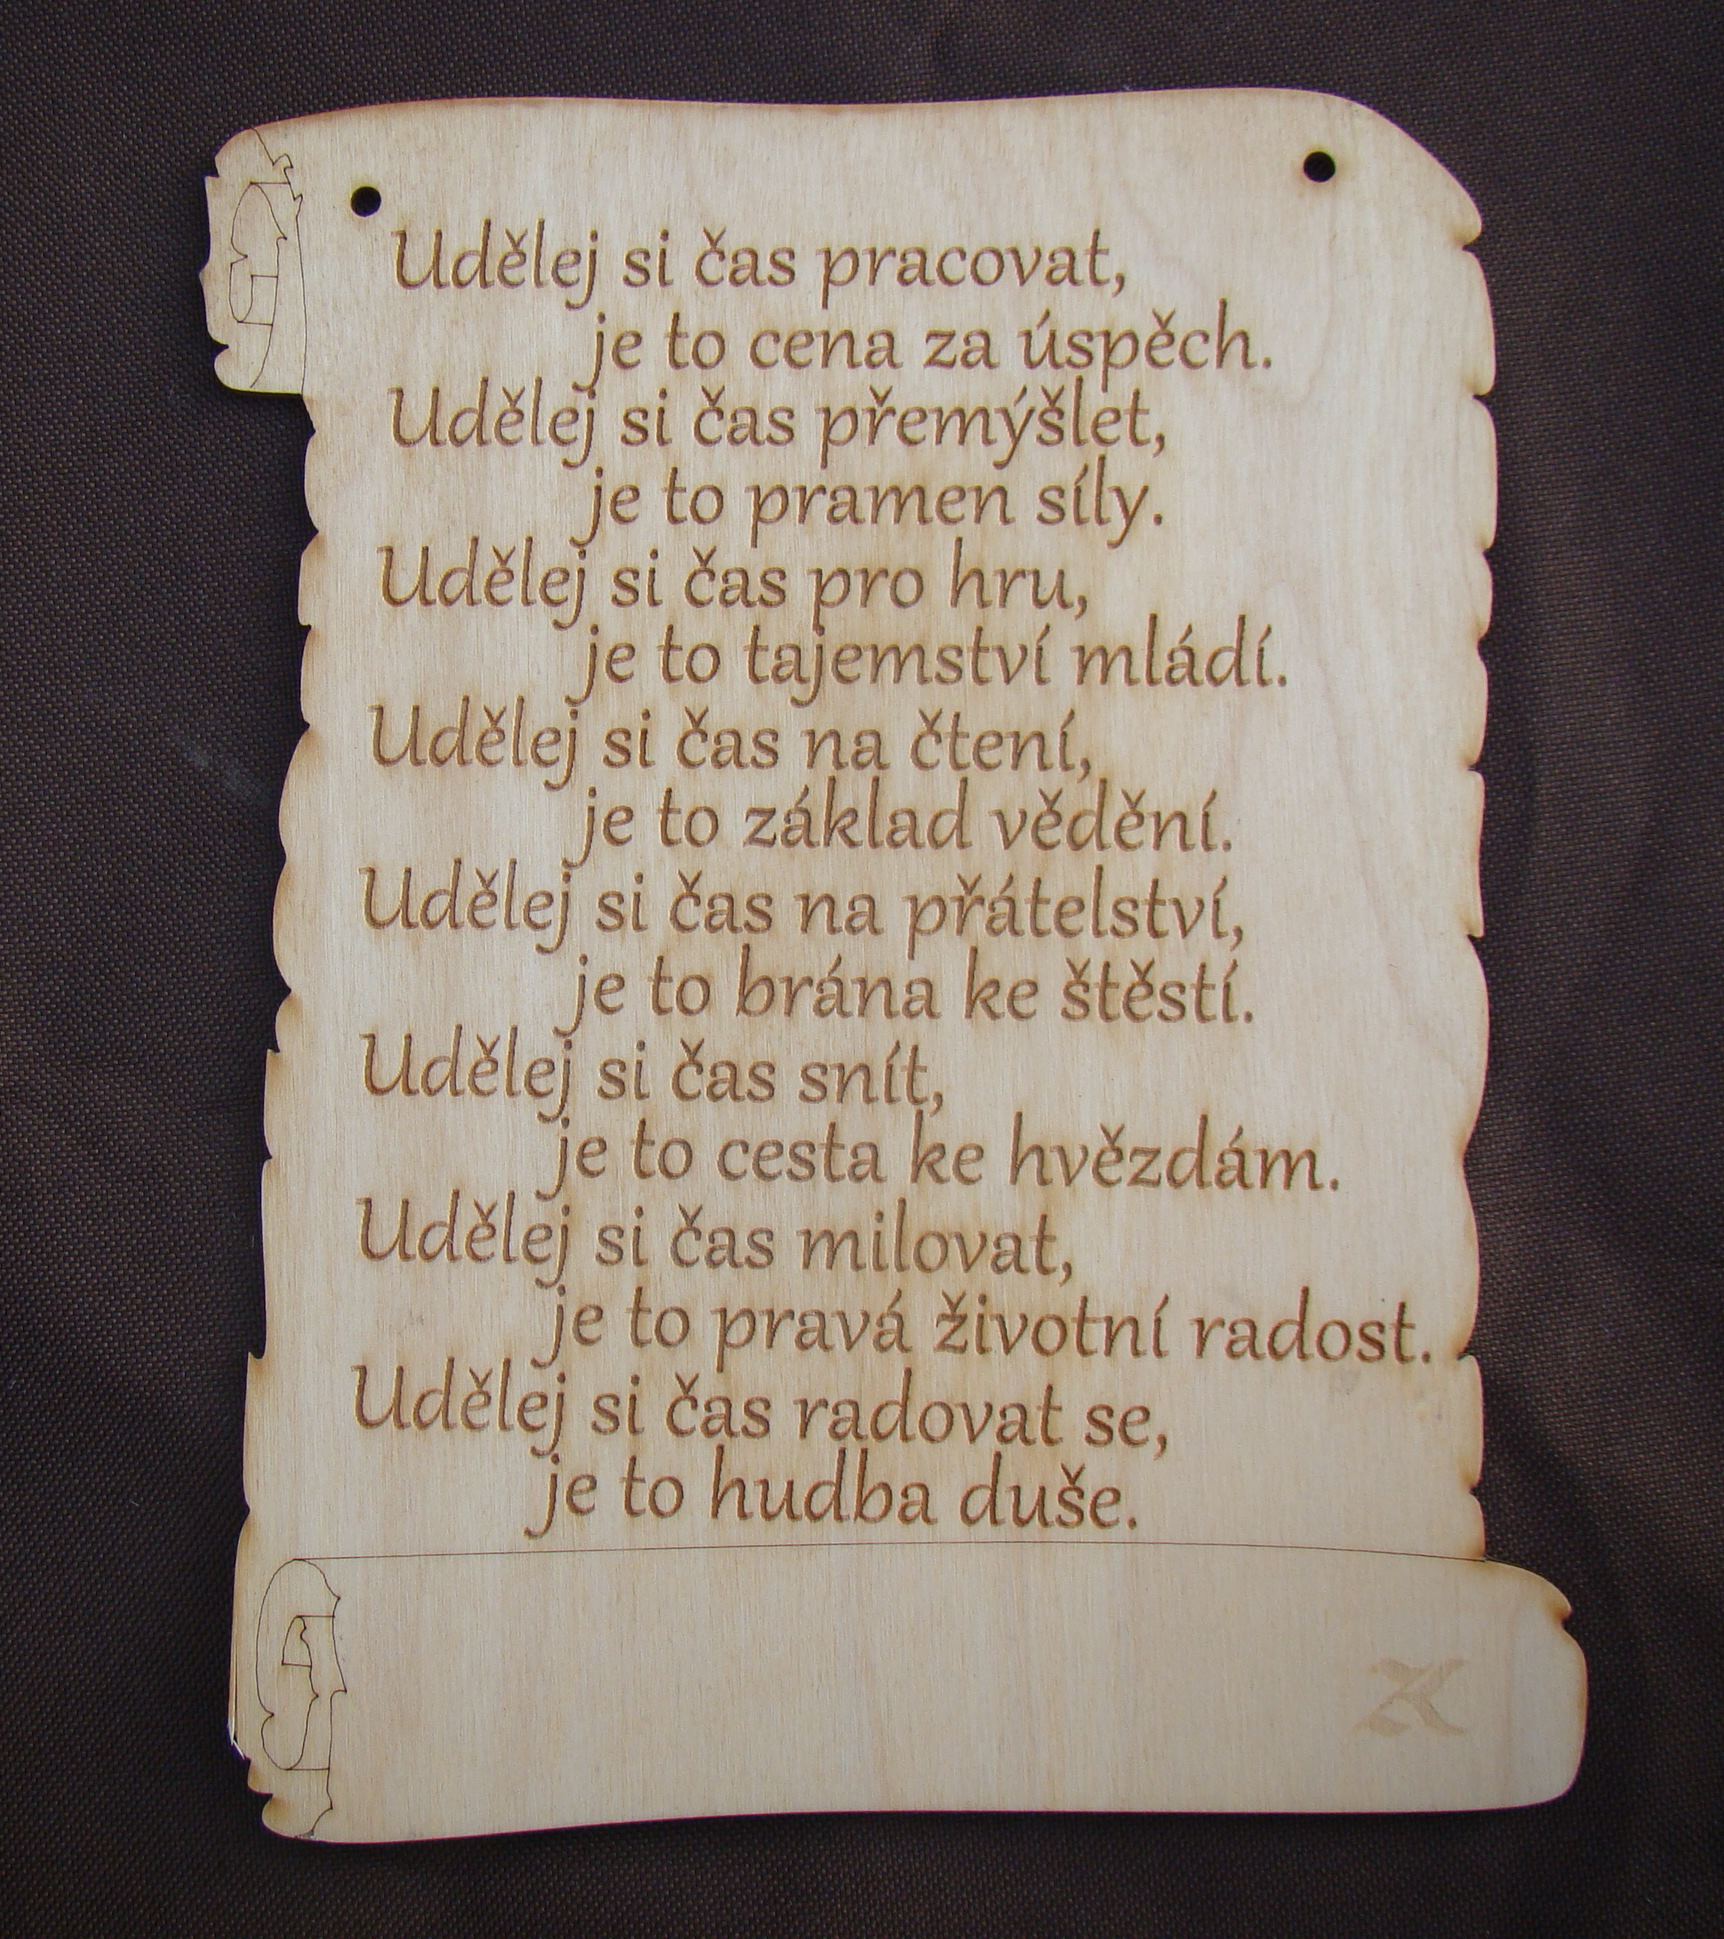 Udělej si čas pracovat,
je to cena za úspěch.
Udělej si čas přemýšlet,
je to pramen síly.
Udělej si čas pro hru,
je to tajemství mládí.
Udělej si čas na čtení,
je to základ vědění.
Udělej si čas na přátelství,
je to brána ke štěstí.
Udělej si čas snít,
je to cesta ke hvězdám.
Udělej si čas milovat,
je to pravá životní radost.
Udělej si čas radovat se,
je to hudba duše.